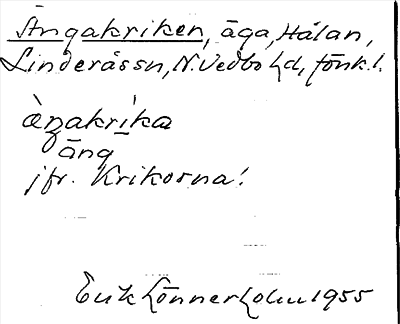 Ängakriken, äga, Hålan,
Linderåssn, N. Vedbo hd, Jönk. l.
àŋakrìka
äng
jfr. Krikorna!
Erik Lönnerholm 1955